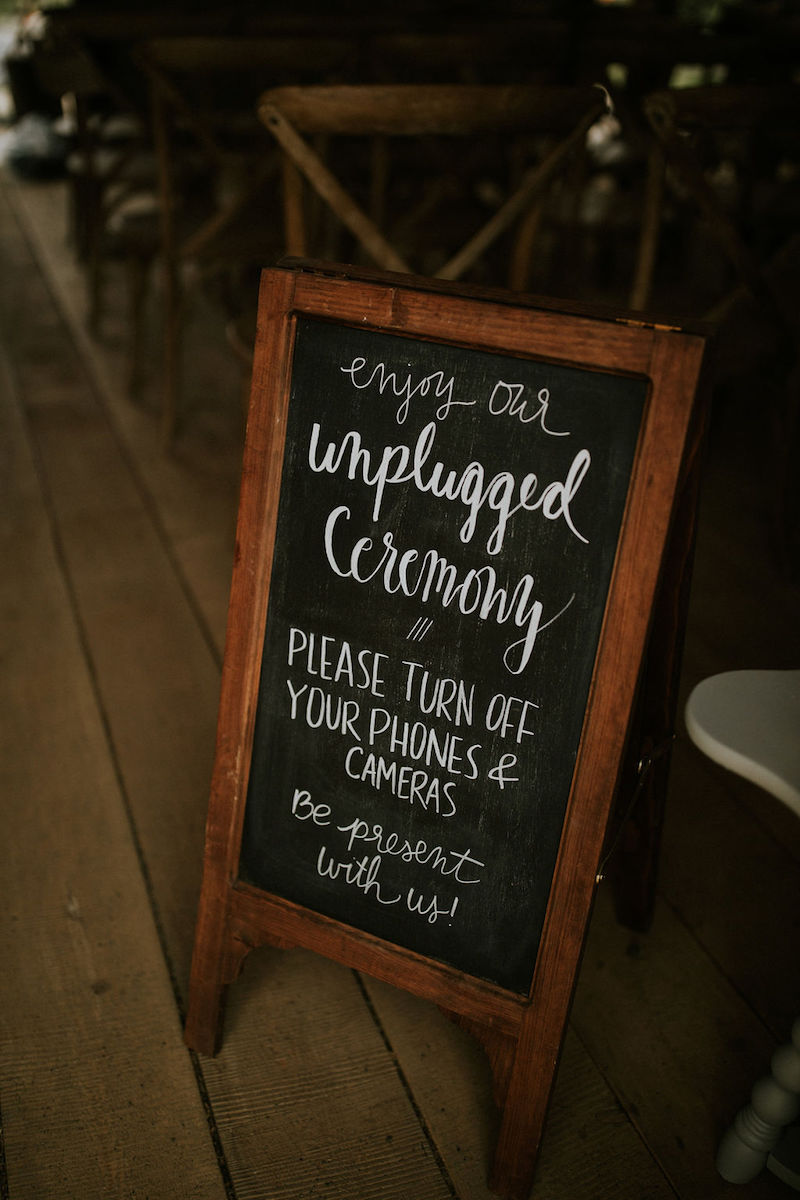 enjoy our
unplugged
Ceremony
///
PLEASE TURN OFF
YOUR PHONES &
CAMERAS
Be present
with us!